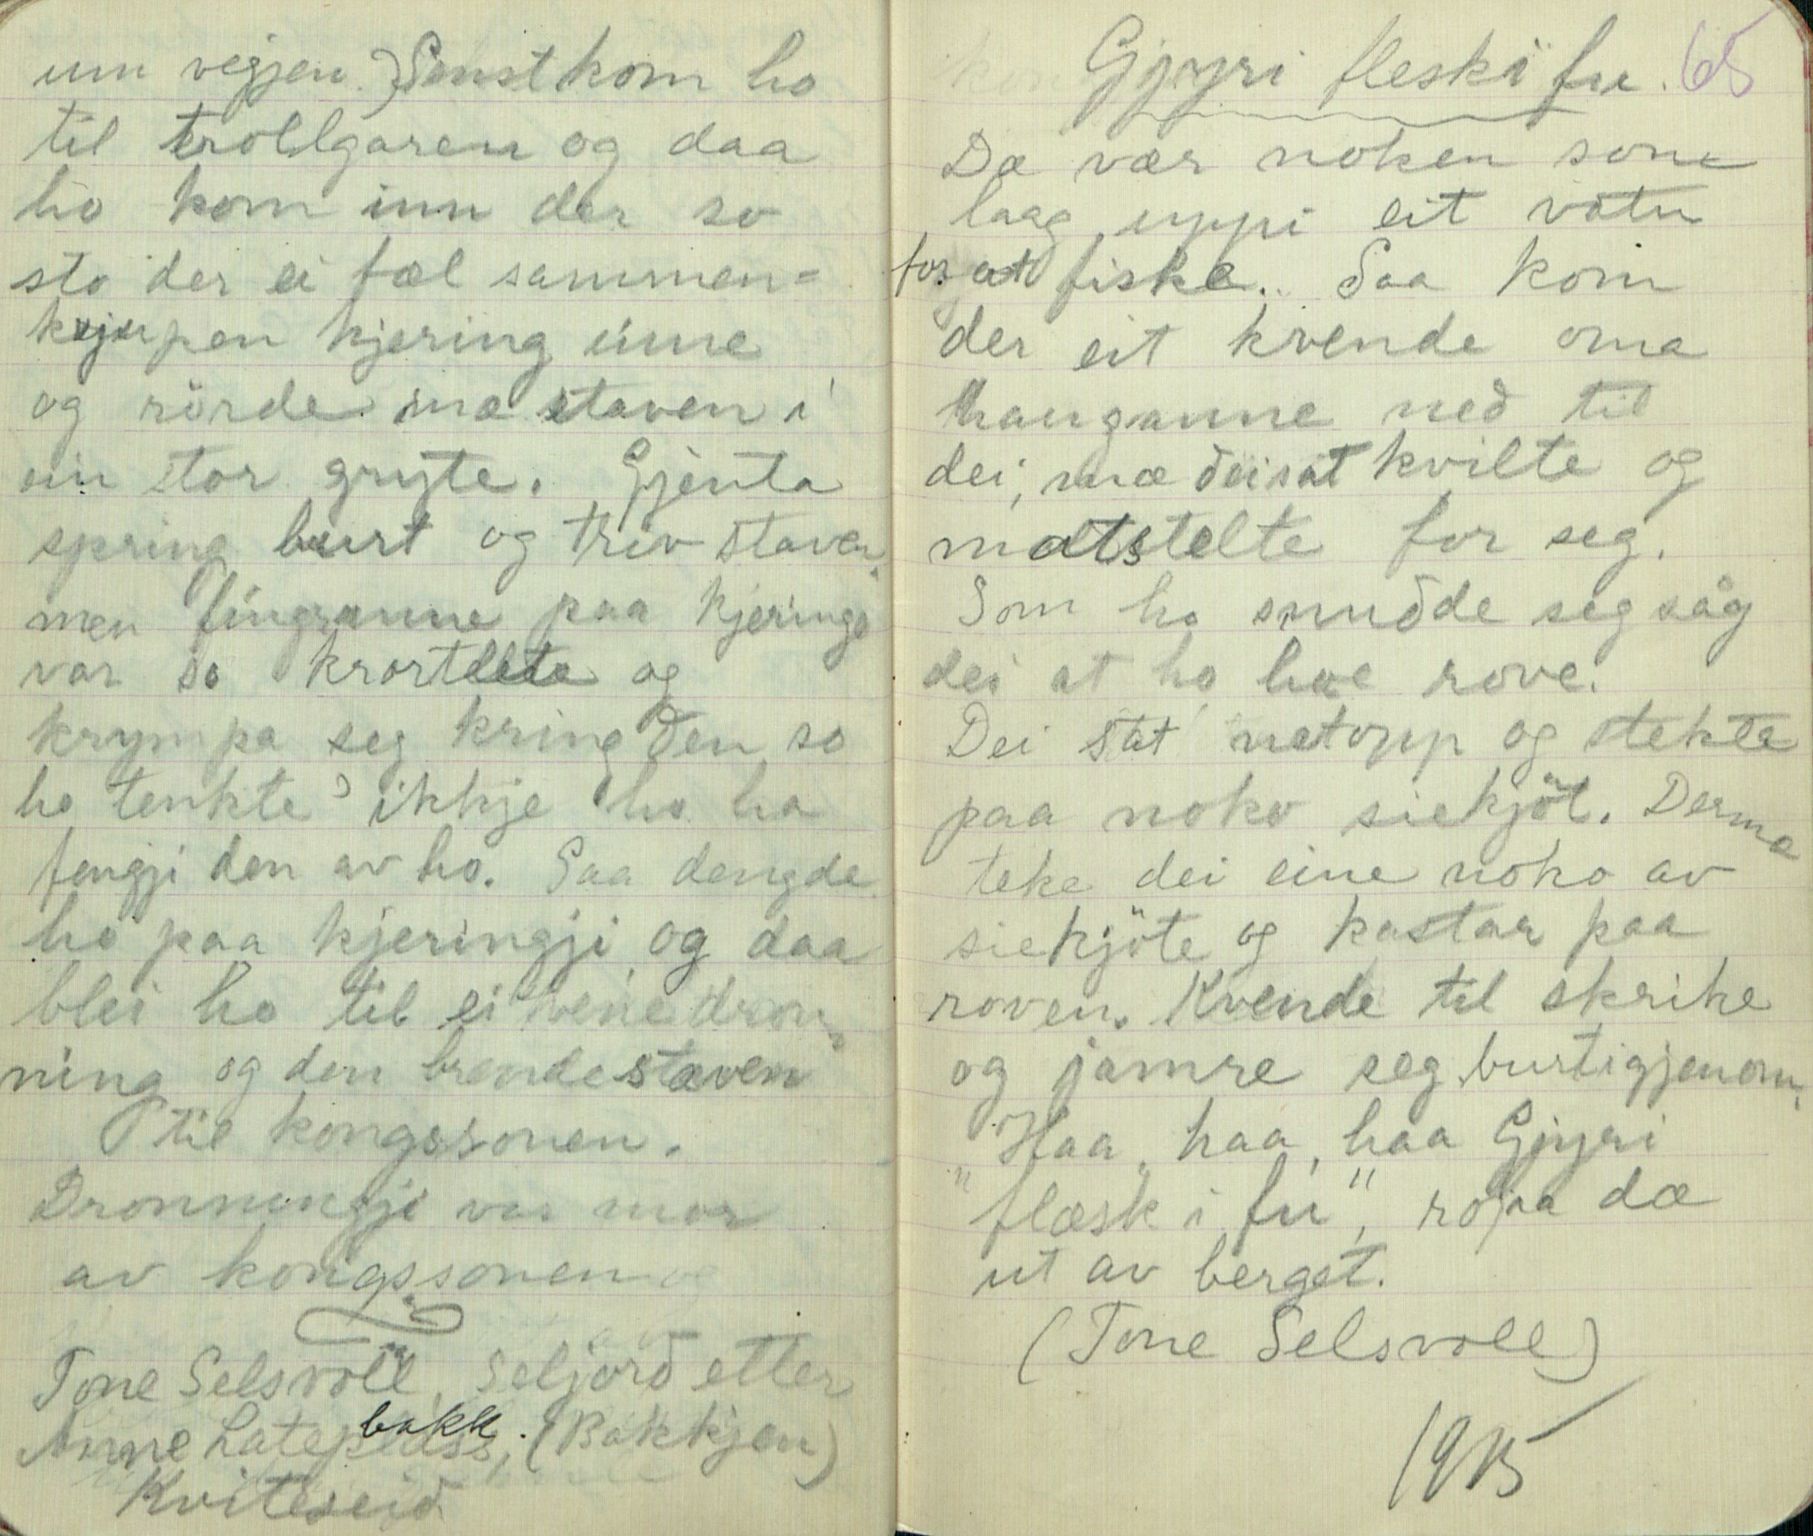 um vegjen. Senst kom ho
til trollgaren og daa
ho kom inn der so
sto der ei fæl sammen-
kjurpen kjering inne
og rörde mæ staven i
ein stor gryte. Gjenta
spring burt og treiv staven,
men fingranne paa kjeringe
var so krortlete og
krympa seg kring den so
ho tenkte ikkje ho ha
fengji den av ho. Saa dengde
ho paa kjeringji og daa
blei ho til ei vene dron-
ning og den brende staven
til kongssonen.
Dronningji var mor
av kongssonen og
Tone Selsvoll, Seljord etter
Anne bakk. (Bakkjen)
Kviteseið
Gjyri fleski fu. 65
Dæ vær noken some
laag uppi eit vatn
for at fiske. Saa kom
der eit kvende oma
hauganne neð til
dei, mæ ðei sat kvilte og
matstelte for seg.
Som ho snuðde seg såg
dei at ho hae rove.
Dei sat netopp og stekte
paa noko siekjöt. Dermæ
teke dei eine noko av
siekjöte og kastar paa
roven. Kvende til skrike
og jamre seg burtigjenom,
"Haa, haa, haa Gjyri
flæsk i fu", ropa dæ
ut av berget.
(Tone Selsvoll)
1915